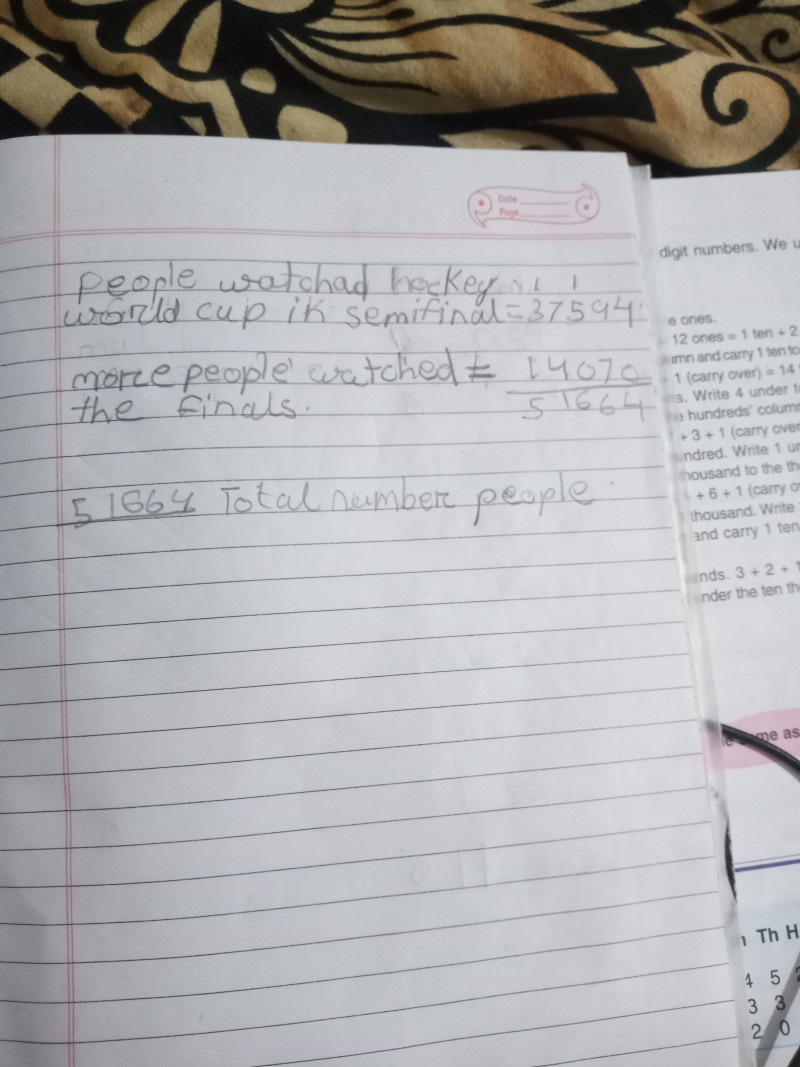 Date
Page
people watchad hockey
world cup in semifinal = 37594
1 1
more people watched = 14070
the finals.
51664
51664 Total number people
digit numbers. We u
e ones.
12 ones = 1 ten + 2
umn and carry 1 ten to
1 (carry over) = 14
s. Write 4 under t
hundreds' column
+ 3 + 1 (carry over
ndred. Write 1 un
housand to the th
+ 6 + 1 (carry o
thousand. Write
and carry 1 ten
nds. 3 + 2 + 1
nder the ten th
me as
Th H
4 5 2
3 3
2 0